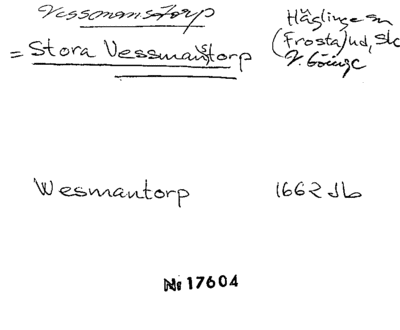 Vessmanstorp
Häglinge sn
= Stora Vessmanstorp
(Frosta) hd, Sk
V. Göinge
Wesmantorp 1662 Jb
Nr 17604